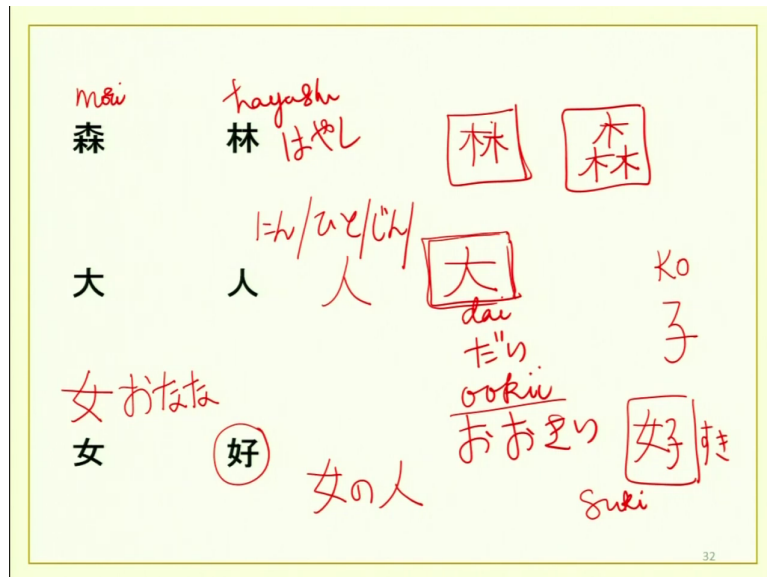 mori hayashi
森 林 はやし 林 森
にん/ひと/じん/
大 人 人 大 KO
dai 子
だい
ookii
女 おなな おおきい 好 すき
女 好
女の人 suki
32